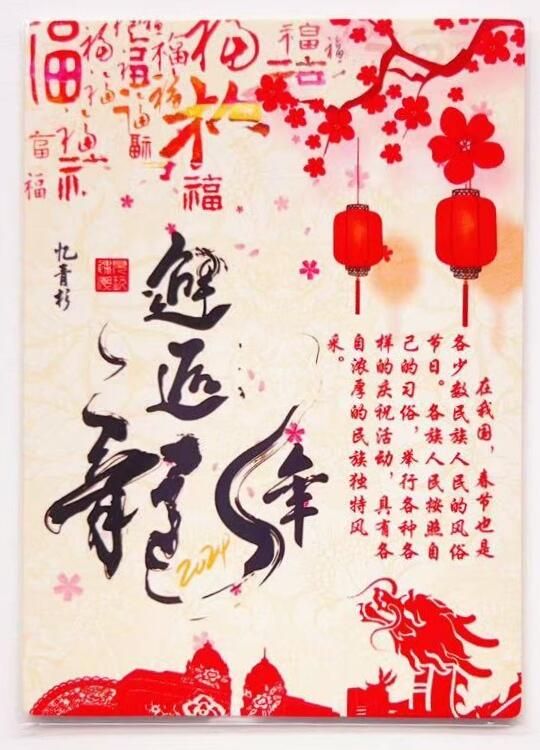 福
福
福
福
福
福
在我国，春节也是
各少数民族人民的风俗
节日。各族人民按照自
己的习俗，举行各种各
样的庆祝活动，具有各
自浓厚的民族独特风
采。
邂逅
龍年
2024
忆青杉